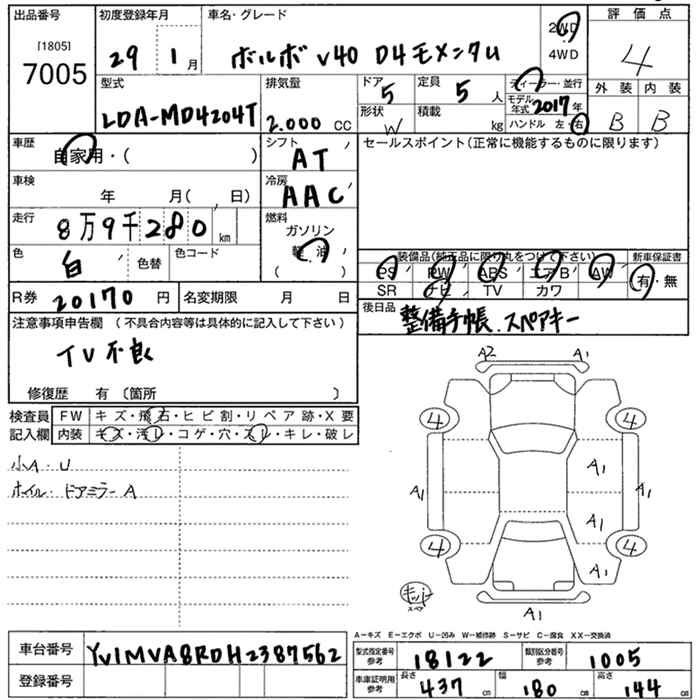 出品番号 初度登録年月 車名・グレード 評価点
[1805] 2WD
7005 29 1月 ボルボ V40 D4モメンタム 4WD 4
型式 排気量 ドア 定員 ディーラー・並行 外装 内装
5 5人 モデル年式 2017年
LDA-MD4204T 2.000cc 形状 W 積載 kg ハンドル 左・右 B B
車歴 シフト セールスポイント(正常に機能するものに限ります)
自家用・( ) AT
車検 冷房
年 月( 、 日) AAC
走行 燃料
8万9千280km ガソリン
色 色替 色コード 軽油 装備品(純正品に限り丸をつけて下さい) 新車保証書
白 ( ) PS PW ABS エアB AW 有・無
SR ナビ TV カワ
R券 20170円 名変期限 月 日 後日品
整備手帳、スペアキー
注意事項申告欄(不具合内容等は具体的に記入して下さい)
TV不良
修復歴 有〔箇所 〕
検査員記入欄 FW キズ・飛石・ヒビ割・リペア跡・X要
内装 キズ・汚レ・コゲ・穴・スレ・キレ・破レ
小A・U
ホイル・ドアミラーA
A2 A1
4 4
A1
A1 A1
A1
4 4
A1
キット
スペア
A1
A-キズ E-エクボ U-凹み W-補修跡 S-サビ C-腐食 XX-交換済
車台番号 YV1MVA8RDH2387562
型式指定番号 参考 18122 類別区分番号 参考 1005
登録番号
車庫証明用 参考 長さ 437cm 幅 180cm 高さ 144cm